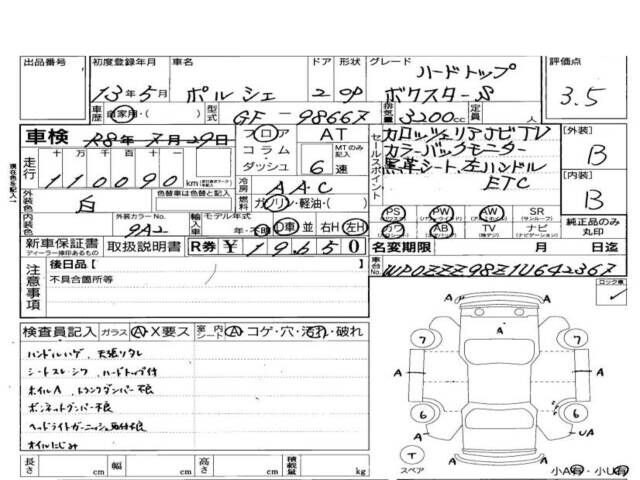 出品番号 初度登録年月 車名 ドア 形状 グレード 評価点
13年5月 ポルシェ 2 OP ハードトップ ボクスターS 3.5
車歴 自家用・( ) 型式 GF-98667 排気量 3200cc 定員 人
現在色を記入
車検 R8年7月29日 フロア AT セールスポイント カロッツェリアナビTV [外装]
コラム MTのみ記入 カラーバックモニター B
走行 十万 万 千 百 十 一 ダッシュ 6速 黒革シート、左ハンドル
110090km 冷房 AAC ETC [内装]
外装色 白 色替車は色替と記入 燃料 ガソリン・軽油・( ) B
内装色 外装カラーNo. 9A2 輸入車 モデル年式 年・不明 D車 並 右H 左H
PS PW AW SR(サンルーフ)
カワ AB TV ナビ(ナビゲーション) 純正品のみ丸印
新車保証書 取扱説明書 R券 ¥19650 名変期限 月 日迄
ディーラー捺印あるもの
注意事項 後日品[ ] 車台No. WP0ZZZ98Z1U642367
不具合箇所等 ロック車
検査員記入 ガラス A・X要ス 室内シート A・コゲ・穴・汚れ・破れ
ハンドルハゲ、天張リタレ
シートスレ・シワ、ハードトップ付
ホイルA、トランクダンパー不良
ボンネットダンパー不良
ヘッドライトガーニッシュ取付不良
オイルにじみ
A
7 A 7
A A A
6 A 6
A UA
T スペア 小A有・小U有
長さ cm 幅 cm 高さ cm 積載量 kg